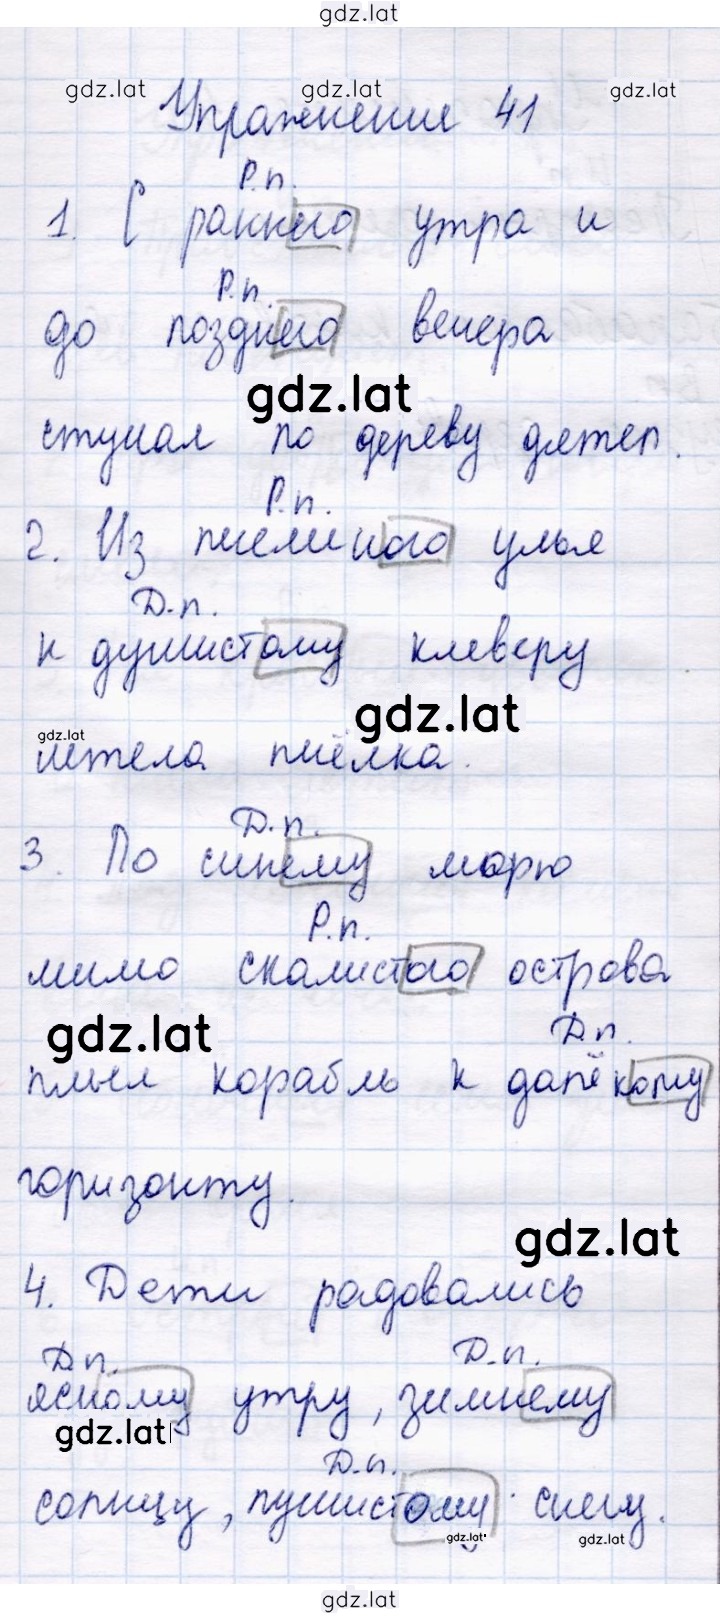 gdz.lat
gdz.lat gdz.lat gdz.lat
Упражнение 41
Р.п.
1. С раннего утра и
Р.п.
до позднего вечера
gdz.lat
стучал по дереву дятел.
Р.п.
2. Из пчелиного улья
Д.п.
к душистому клеверу
gdz.lat
gdz.lat
летела пчёлка.
Д.п.
3. По синему морю
Р.п.
мимо скалистого острова
gdz.lat
Д.п.
плыл корабль к далёкому
горизонту.
gdz.lat
4. Дети радовались
Д.п. Д.п.
ясному утру, зимнему
gdz.lat
Д.п.
солнцу, пушистому снегу.
gdz.lat gdz.lat
gdz.lat